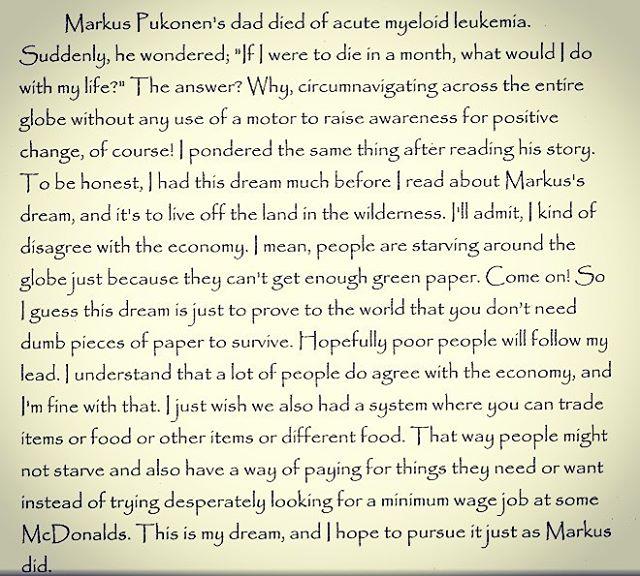 Markus Pukonen's dad died of acute myeloid leukemia.
Suddenly, he wondered; "If I were to die in a month, what would I do
with my life?" The answer? Why, circumnavigating across the entire
globe without any use of a motor to raise awareness for positive
change, of course! I pondered the same thing after reading his story.
To be honest, I had this dream much before I read about Markus's
dream, and it's to live off the land in the wilderness. I'll admit, I kind of
disagree with the economy. I mean, people are starving around the
globe just because they can't get enough green paper. Come on! So
I guess this dream is just to prove to the world that you don't need
dumb pieces of paper to survive. Hopefully poor people will follow my
lead. I understand that a lot of people do agree with the economy, and
I'm fine with that. I just wish we also had a system where you can trade
items or food or other items or different food. That way people might
not starve and also have a way of paying for things they need or want
instead of trying desperately looking for a minimum wage job at some
McDonalds. This is my dream, and I hope to pursue it just as Markus
did.